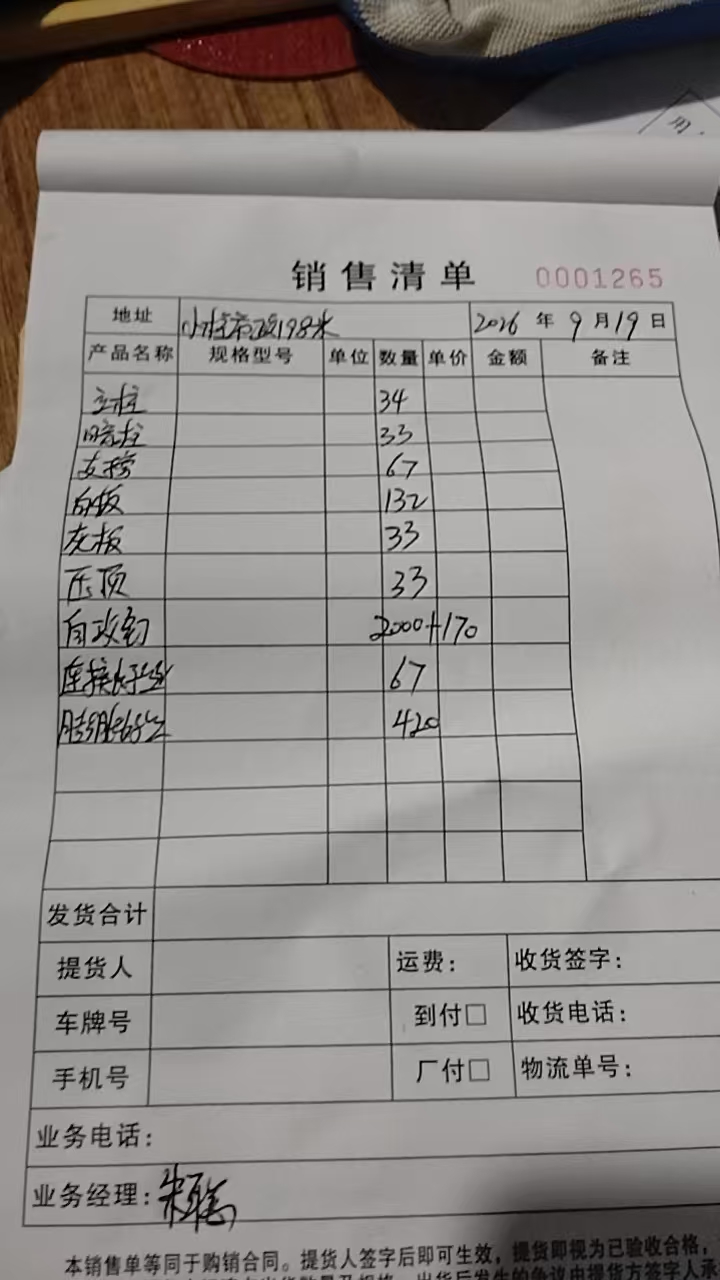 销售清单 0001265
地址 小柱市政198米 2026年9月19日
产品名称 规格型号 单位 数量 单价 金额 备注
立柱 34
暗柱 33
支撑 67
白板 132
灰板 33
压顶 33
自攻钉 2000+170
连接 67
膨胀 420
发货合计
提货人 运费: 收货签字:
车牌号 到付□ 收货电话:
手机号 厂付□ 物流单号:
业务电话:
业务经理:
本销售单等同于购销合同。提货人签字后即可生效,提货即视为已验收合格,